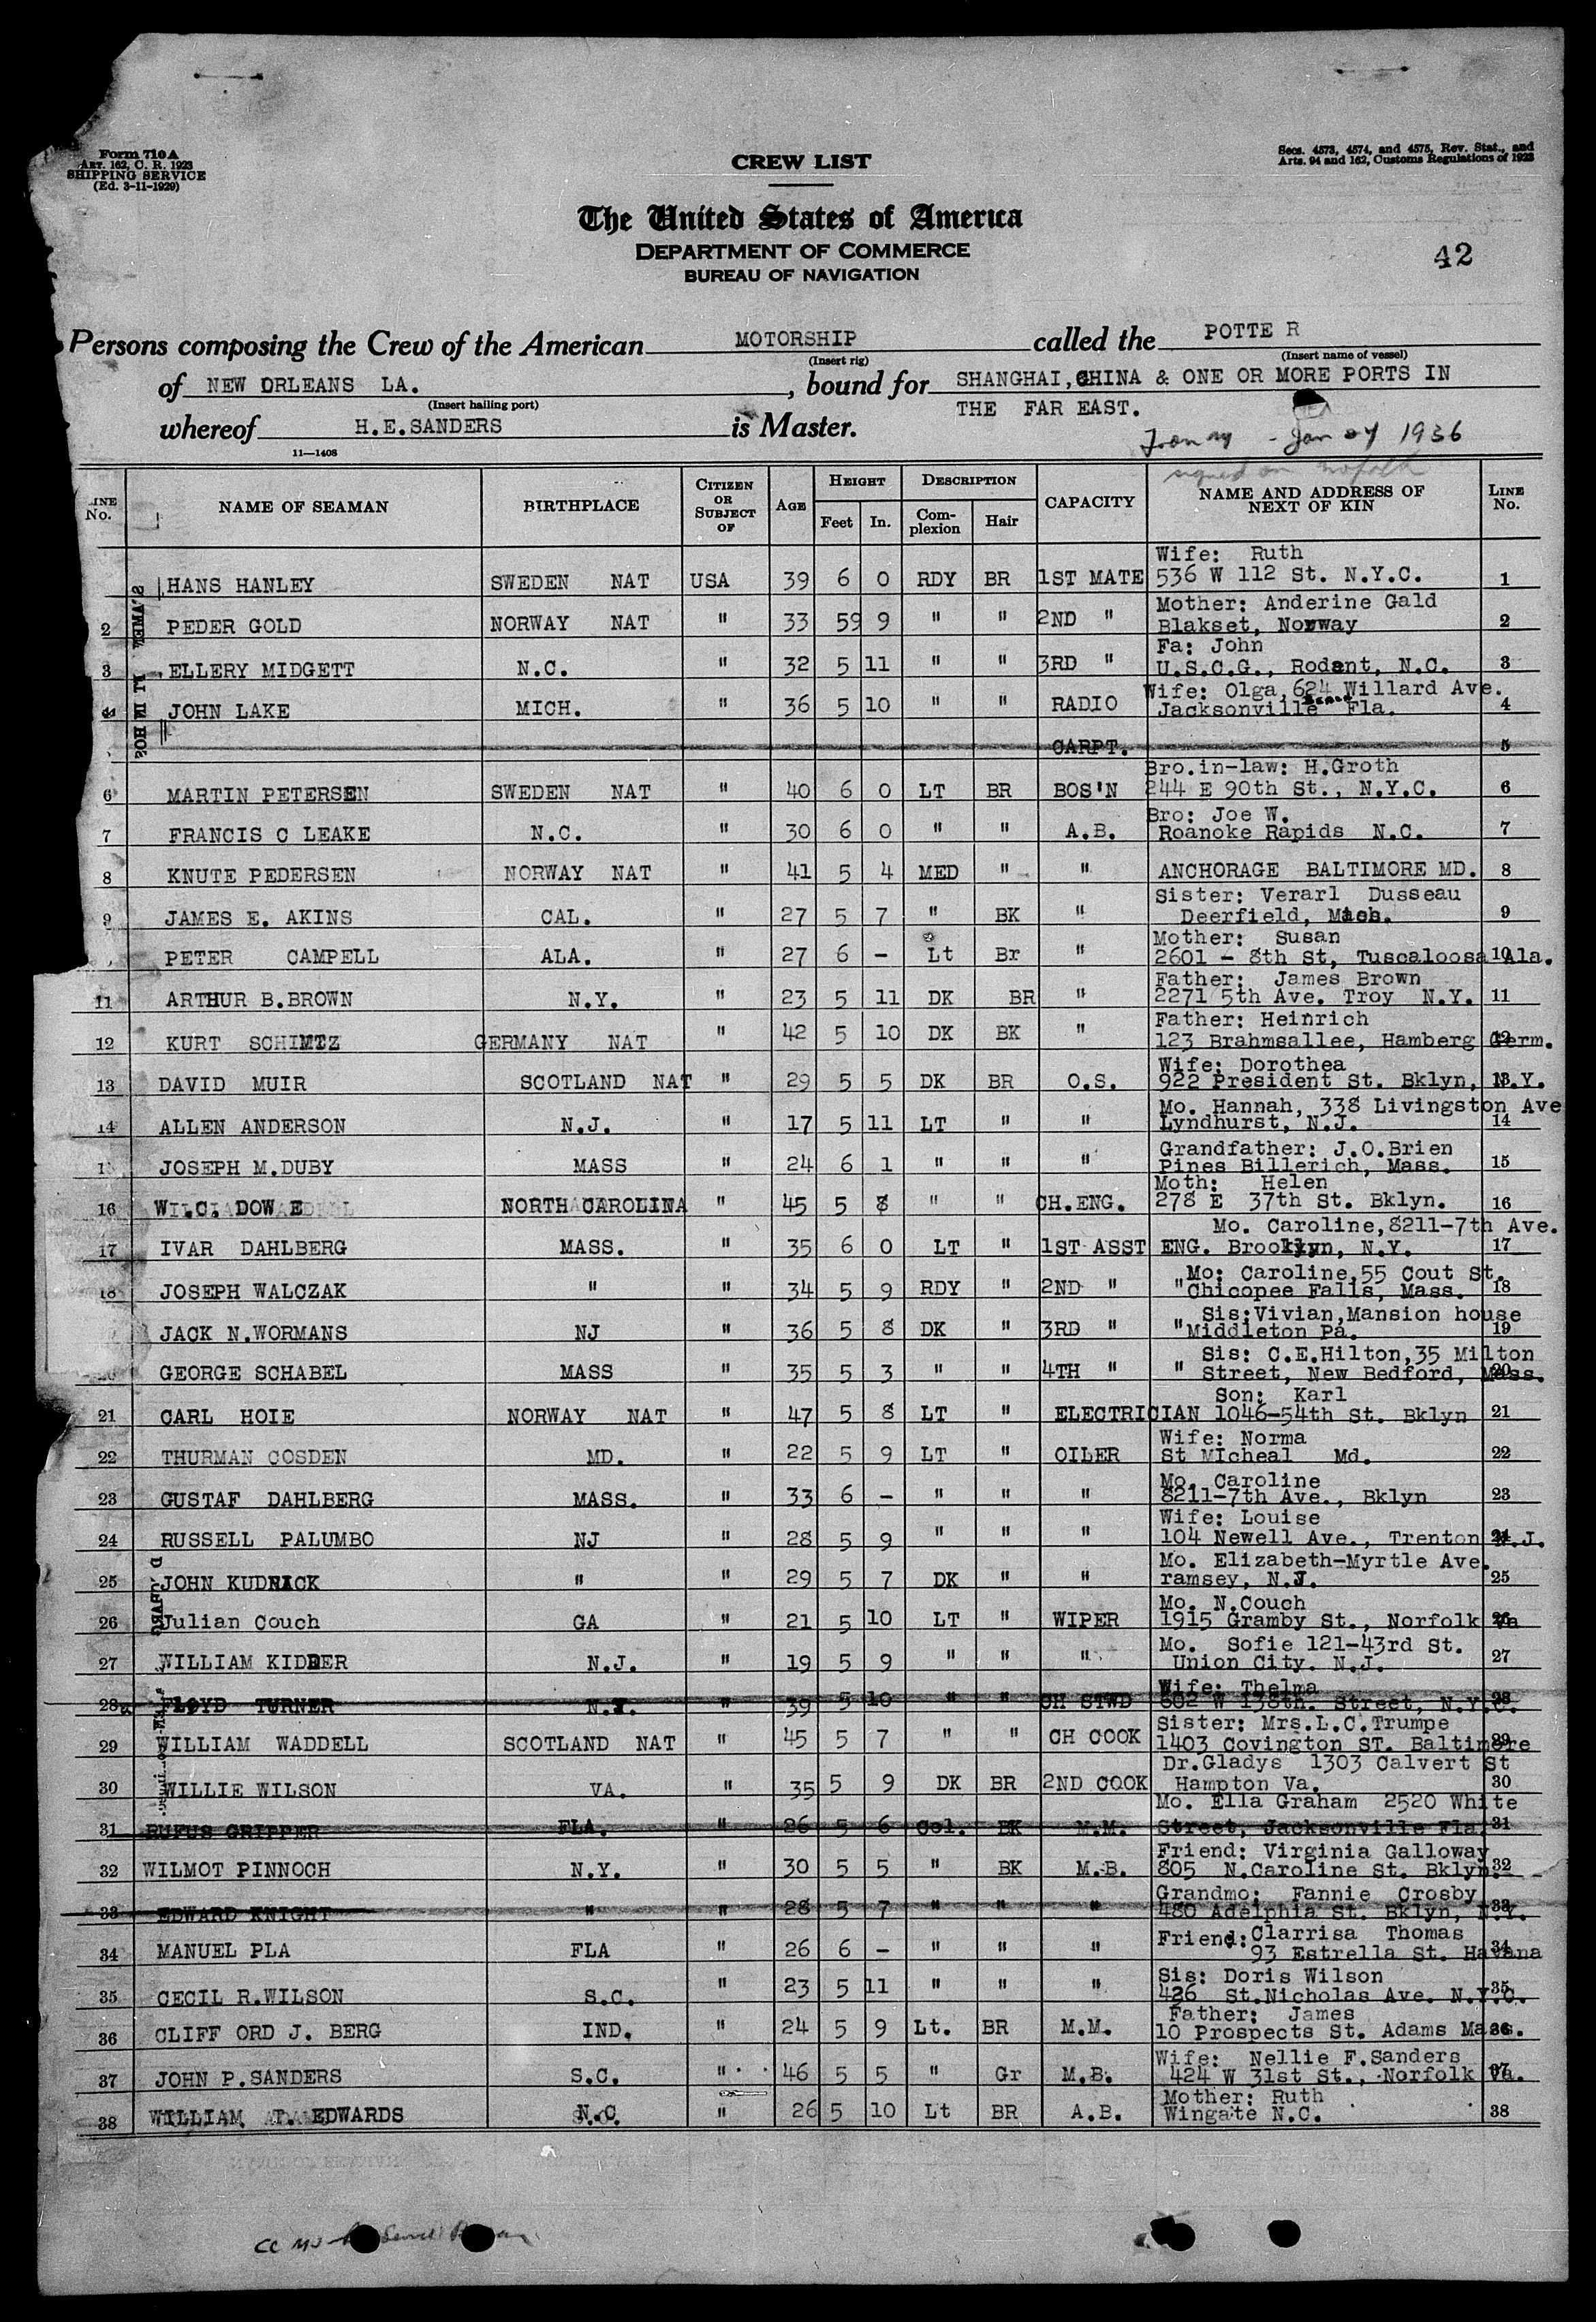 Form 710A
ART. 162, C. R. 1923
SHIPPING SERVICE
(Ed. 3-11-1929)
CREW LIST
Secs. 4573, 4574, and 4575, Rev. Stat., and
Arts. 94 and 162, Customs Regulations of 1923
The United States of America
DEPARTMENT OF COMMERCE
BUREAU OF NAVIGATION
42
Persons composing the Crew of the American MOTORSHIP called the POTTE R
(Insert rig) (Insert name of vessel)
of NEW ORLEANS LA. , bound for SHANGHAI, CHINA & ONE OR MORE PORTS IN
(Insert hailing port) THE FAR EAST.
whereof H.E.SANDERS is Master.
11—1408
Jan 1936
signed on Norfolk
LINE No. NAME OF SEAMAN BIRTHPLACE CITIZEN OR SUBJECT OF AGE HEIGHT Feet In. DESCRIPTION Complexion Hair CAPACITY NAME AND ADDRESS OF NEXT OF KIN LINE No.
Wife: Ruth
HANS HANLEY SWEDEN NAT USA 39 6 0 RDY BR 1ST MATE 536 W 112 St. N.Y.C. 1
Mother: Anderine Gald
2 PEDER GOLD NORWAY NAT " 33 59 9 " " 2ND " Blakset, Norway 2
Fa: John
3 ELLERY MIDGETT N.C. " 32 5 11 " " 3RD " U.S.C.G., Rodent, N.C. 3
Wife: Olga, 624 Willard Ave.
4 JOHN LAKE MICH. " 36 5 10 " " RADIO Jacksonville Fla. 4
CARPT. 5
Bro.in-law: H.Groth
6 MARTIN PETERSEN SWEDEN NAT " 40 6 0 LT BR BOS'N 244 E 90th St., N.Y.C. 6
Bro: Joe W.
7 FRANCIS C LEAKE N.C. " 30 6 0 " " A.B. Roanoke Rapids N.C. 7
8 KNUTE PEDERSEN NORWAY NAT " 41 5 4 MED " " ANCHORAGE BALTIMORE MD. 8
Sister: Verarl Dusseau
9 JAMES E. AKINS CAL. " 27 5 7 " BK " Deerfield, Mich. 9
Mother: Susan
PETER CAMPELL ALA. " 27 6 - Lt Br " 2601 - 8th St, Tuscaloosa Ala. 10
Father: James Brown
11 ARTHUR B.BROWN N.Y. " 23 5 11 DK BR " 2271 5th Ave. Troy N.Y. 11
Father: Heinrich
12 KURT SCHIMTZ GERMANY NAT " 42 5 10 DK BK " 123 Brahmsallee, Hamberg Germ. 12
Wife: Dorothea
13 DAVID MUIR SCOTLAND NAT " 29 5 5 DK BR O.S. 922 President St. Bklyn, N.Y. 13
Mo. Hannah, 338 Livingston Ave
14 ALLEN ANDERSON N.J. " 17 5 11 LT " " Lyndhurst, N.J. 14
Grandfather: J.O.Brien
15 JOSEPH M.DUBY MASS " 24 6 1 " " " Pines Billerich, Mass. 15
Moth: Helen
16 W.C. DOW E NORTH CAROLINA " 45 5 8 " " CH.ENG. 278 E 37th St. Bklyn. 16
Mo. Caroline,8211-7th Ave.
17 IVAR DAHLBERG MASS. " 35 6 0 LT " 1ST ASST ENG. Brooklyn, N.Y. 17
Mo: Caroline,55 Cout St.
18 JOSEPH WALCZAK " " 34 5 9 RDY " 2ND " " Chicopee Falls, Mass. 18
Sis:Vivian,Mansion house
JACK N.WORMANS NJ " 36 5 8 DK " 3RD " " Middleton Pa. 19
Sis: C.E.Hilton,35 Milton
20 GEORGE SCHABEL MASS " 35 5 3 " " 4TH " " Street, New Bedford, Mass. 20
Son: Karl
21 CARL HOIE NORWAY NAT " 47 5 8 LT " ELECTRICIAN 1046-54th St. Bklyn 21
Wife: Norma
22 THURMAN COSDEN MD. " 22 5 9 LT " OILER St MIcheal Md. 22
Mo. Caroline
23 GUSTAF DAHLBERG MASS. " 33 6 - " " " 8211-7th Ave., Bklyn 23
Wife: Louise
24 RUSSELL PALUMBO NJ " 28 5 9 " " " 104 Newell Ave., Trenton N.J. 24
Mo. Elizabeth-Myrtle Ave.
25 JOHN KUDRICK " " 29 5 7 DK " " ramsey, N.J. 25
Mo. N.Couch
26 Julian Couch GA " 21 5 10 LT " WIPER 1915 Gramby St., Norfolk Va 26
Mo. Sofie 121-43rd St.
27 WILLIAM KIDDER N.J. " 19 5 9 " " " Union City. N.J. 27
Wife: Thelma
28 FLOYD TURNER N.Y. " 39 5 10 " " CH STWD 602 W 138th. Street, N.Y.C. 28
Sister: Mrs.L.C.Trumpe
29 WILLIAM WADDELL SCOTLAND NAT " 45 5 7 " " CH COOK 1403 Covington ST. Baltimore 29
Dr.Gladys 1303 Calvert St
30 WILLIE WILSON VA. " 35 5 9 DK BR 2ND COOK Hampton Va. 30
Mo. Ella Graham 2520 White
31 RUFUS GRIPPER FLA. " 26 5 6 Col. BK M.M. Street, Jacksonville Fla. 31
Friend: Virginia Galloway
32 WILMOT PINNOCH N.Y. " 30 5 5 " BK M.B. 805 N.Caroline St. Bklyn. 32
Grandmo: Fannie Crosby
33 EDWARD KNIGHT " " 28 5 7 " " " 480 Adelphia St. Bklyn, N.Y. 33
Friend: Clarrisa Thomas
34 MANUEL PLA FLA " 26 6 - " " " 93 Estrella St. Havana 34
Sis: Doris Wilson
35 CECIL R.WILSON S.C. " 23 5 11 " " " 426 St.Nicholas Ave. N.Y.C. 35
Father: James
36 CLIFF ORD J. BERG IND. " 24 5 9 Lt. BR M.M. 10 Prospects St. Adams Mass. 36
Wife: Nellie F.Sanders
37 JOHN P.SANDERS S.C. " 46 5 5 " Gr M.B. 424 W 31st St., Norfolk Va. 37
Mother: Ruth
38 WILLIAM T. EDWARDS N.C. " 26 5 10 Lt BR A.B. Wingate N.C. 38